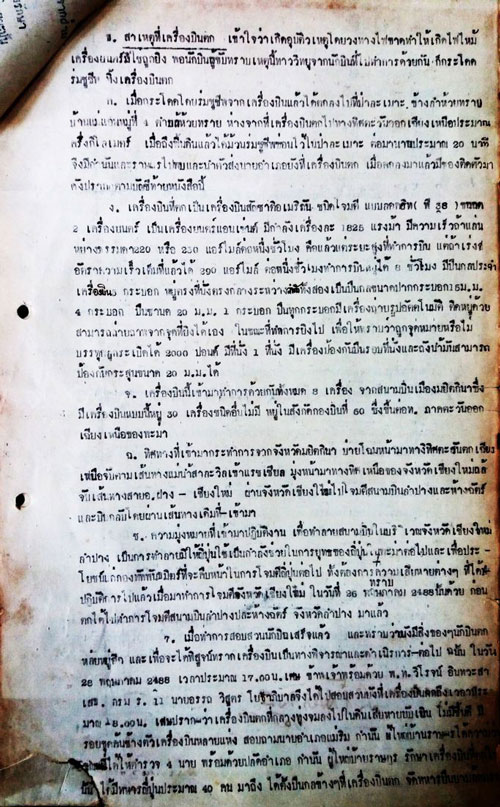 ข. สาเหตุที่เครื่องบินตก เข้าใจว่าเกิดอุบัติวเหตุโดยวงทางไฟขาดทำให้เกิดไฟไหม้
เครื่องยนตร์มิใช่ถูกยิง พอนักบินผู้ขับทราบเหตุนี้ทางวิทยุจากนักบินที่ไปทำการด้วยกัน ก็กระโดด
ร่มชูชีพ ทิ้งเครื่องบินตก
ค. เมื่อกระโดดโดยร่มชูชีพจากเครื่องบินแล้วได้ตกลงไปที่ป่าละเมาะ ข้างลำห้วยทราย
หมู่ที่ 4 ตำบลห้วยทราย ห่างจากที่เครื่องบินตกไปทางทิศตะวันออกเฉียงเหนือประมาณ
ครึ่งกิโลเมตร์ เมื่อถึงพื้นดินแล้วได้ม้วนร่มชูชีพซ่อนไว้ในป่าละเมาะ ต่อมานานประมาณ 20 นาที
จึงมีกำนันและราษฎรไปพบและนำตัวส่งนายอำเภอยังที่เครื่องบินตก เมื่อตกลงมาแล้วมีของติดตัวมา
ดังปรากฏตามบัญชีท้ายหนังสือนี้
ง. เครื่องบินที่ตกเป็นเครื่องบินสหรัฐอเมริกัน ชนิดโจมตี แบบลอกฮีท ( พี 38 ) ขนาด
2 เครื่องยนตร์ เป็นเครื่องยนตร์แอนเล่นส์ มีกำลังเครื่องละ 1625 แรงม้า มีความเร็วถ้าแล่น
อย่างธรรมดา 220 หรือ 230 แอร์ไมล์ต่อหนึ่งชั่วโมง คือแล้วแต่ระยะสูงที่ทำการบิน แต่ถ้าเร่งส์
อัตราความเร็วเต็มที่แล้วได้ 290 แอร์ไมล์ ต่อหนึ่งชั่วโมงทำการบินอยู่ได้ 8 ชั่วโมง มีปืนกลประจำ
4 กระบอก เป็นขนาด 20 ม.ม. 1 กระบอก ปืนทุกกระบอกมีเครื่องถ่ายรูปอัตโนมัติ ติดอยู่ด้วย
สามารถถ่ายภาพจากจุดที่ยิงได้เอง ในขณะที่ทำการยิงไป เพื่อให้ทราบว่าถูกจุดหมายหรือไม่
บรรทุกลูกระเบิดได้ 2000 ปอนด์ มีที่นั่ง 1 ที่นั่ง มีเครื่องป้องกันปืนรอบที่นั่งและถังน้ำมันสามารถ
ป้องกันกระสุนขนาด 20 ม.ม.ได้
จ. เครื่องบินนี้เข้ามาทำการด้วยกันทั้งหมด 8 เครื่อง จากสนามบินเมืองมยิตกินาซึ่ง
มีเครื่องบินแบบนี้อยู่ 30 เครื่องชนิดอื่นไม่มี อยู่ในสังกัดกองบินที่ 60 ซึ่งขึ้นต่อท. ภาคตะวันออก
เฉียงเหนือของพะมา
ฉ. ทิศทางที่เข้ามากระทำการจากจังหวัดมยิตกินา บ่ายโฉมหน้ามาทางทิศตะวันตกเฉียง
เหนือจับตามเส้นทางแม่น้ำสาละวิลเข้าแรชเชียล มุ่งหน้ามาทางทิศเหนือของจังหวัดเชียงใหม่แล้ว
จับเส้นทางสายอ.ฝาง - เชียงใหม่ ผ่านจังหวัดเชียงใหม่ไปโจมตีสนามบินลำปางและห้างฉัตร์
และบินกลับโดยผ่านเส้นทางเดิมที่เข้ามา
ช. ความมุ่งหมายที่เข้ามาปฏิบัติงาน เพื่อทำลายสนามบินในบริเวณจังหวัดเชียงใหม่
ลำปาง เป็นการทำลายมิให้ญี่ปุ่นใช้เป็นกำลังช่วยในการยุทธของญี่ปุ่นในพะมาต่อไปและเพื่อประ-
โยชน์แก่กองทัพพันธมิตร์ที่จะคืบหน้าในการโจมตีญี่ปุ่นต่อไป ทั้งต้องการทราบความเสียหายต่างๆ ที่ได้
ปฏิบัติการไปแล้วเมื่อมาทำการโจมตีจังหวัดเชียงใหม่ ในวันที่ 26 พฤษภาคม 2488 นั้นด้วย ก่อน
ตกได้ไปทำการโจมตีสนามบินลำปางและห้างฉัตร์ จังหวัดลำปาง มาแล้ว
7. เมื่อทำการสอบสวนนักบินเสร็จแล้ว และทราบว่ายังมีสิ่งของๆนักบินตก
หล่นอยู่อีก และเพื่อจะได้พิสูจน์ทราบเครื่องบินเป็นทางพิจารณาและดำเนินการต่อไป ฉะนั้น ในวัน
28 พฤษภาคม 2488 เวลาประมาณ 17.00 น.เศษ ข้าพเจ้าพร้อมด้วย พ.ท.วิโรจน์ อินทวะสา
เสธ. กรม ร. 11 นายอรรถ วิสูตร โยธาภิบาลจึงได้ไปสอบสวนยังที่เครื่องบินตกถึงเวลาประ-
มาณ 18.00 น. เสษปรากฏว่าเครื่องบินตกที่กลางทุ่งจมลงไปในดินเสียหายยับเยิน ไม่มีชิ้นดี มี
รอยขุดค้นข้างตัวเครื่องบินหลายแห่ง สอบถามนายอำเภอแม่ริม กำนัน ผู้ใหญ่บ้านราษฎรได้ความ
ให้ตำรวจ 4 นาย พร้อมด้วยปลัดอำเภอ กำนัน ผู้ใหญ่บ้านราษฎร รักษาเครื่องบิน
นั้น ได้มีทหารญี่ปุ่นประมาณ 40 คน มาถึง ได้ตั้งปืนกลข้างๆที่เครื่องบินตก